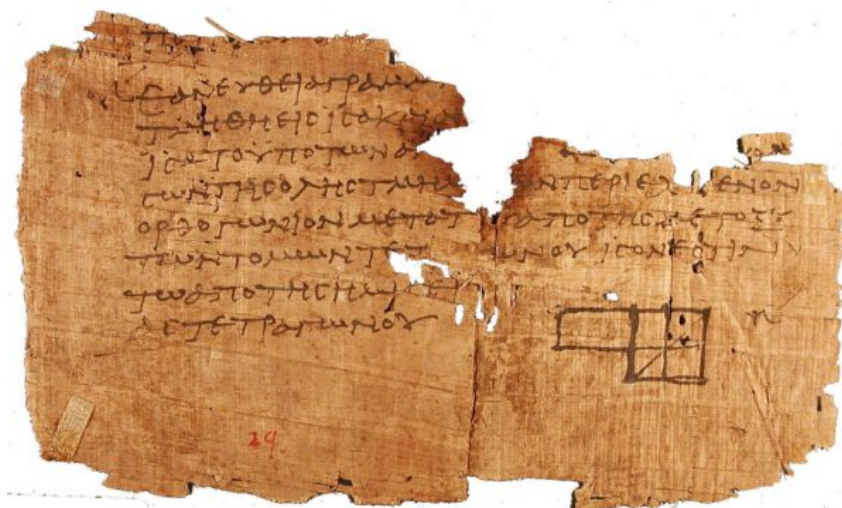 ΕΑΝΕΥΘΕΙΑΓΡΑΜΜ
ΤΜΗΘΗΕΙϹΙϹΑΚΑΙΑ
ΙϹΑΤΟΥΠΟΤΩΝΑ
ΤΩΝΤΗϹΟΛΗϹΤΜΗΜ ΩΝΠΕΡΙΕΧ ΜΕΝΟΝ
ΟΡΘΟΓΩΝΙΟΝΜΕΤΑΤΟΥ ΑΠΟΤΗϹΜΕΤΟΞΥ
ΤΩΝΤΟΜΩΝΤΕΤ ΩΝΟΥΙϹΟΝΕϹΤΙΝ
ΤΩΑΠΟΤΗϹΗΜΙϹΕΙ
ΑϹΤΕΤΡΑΓΩΝΟΥ
29